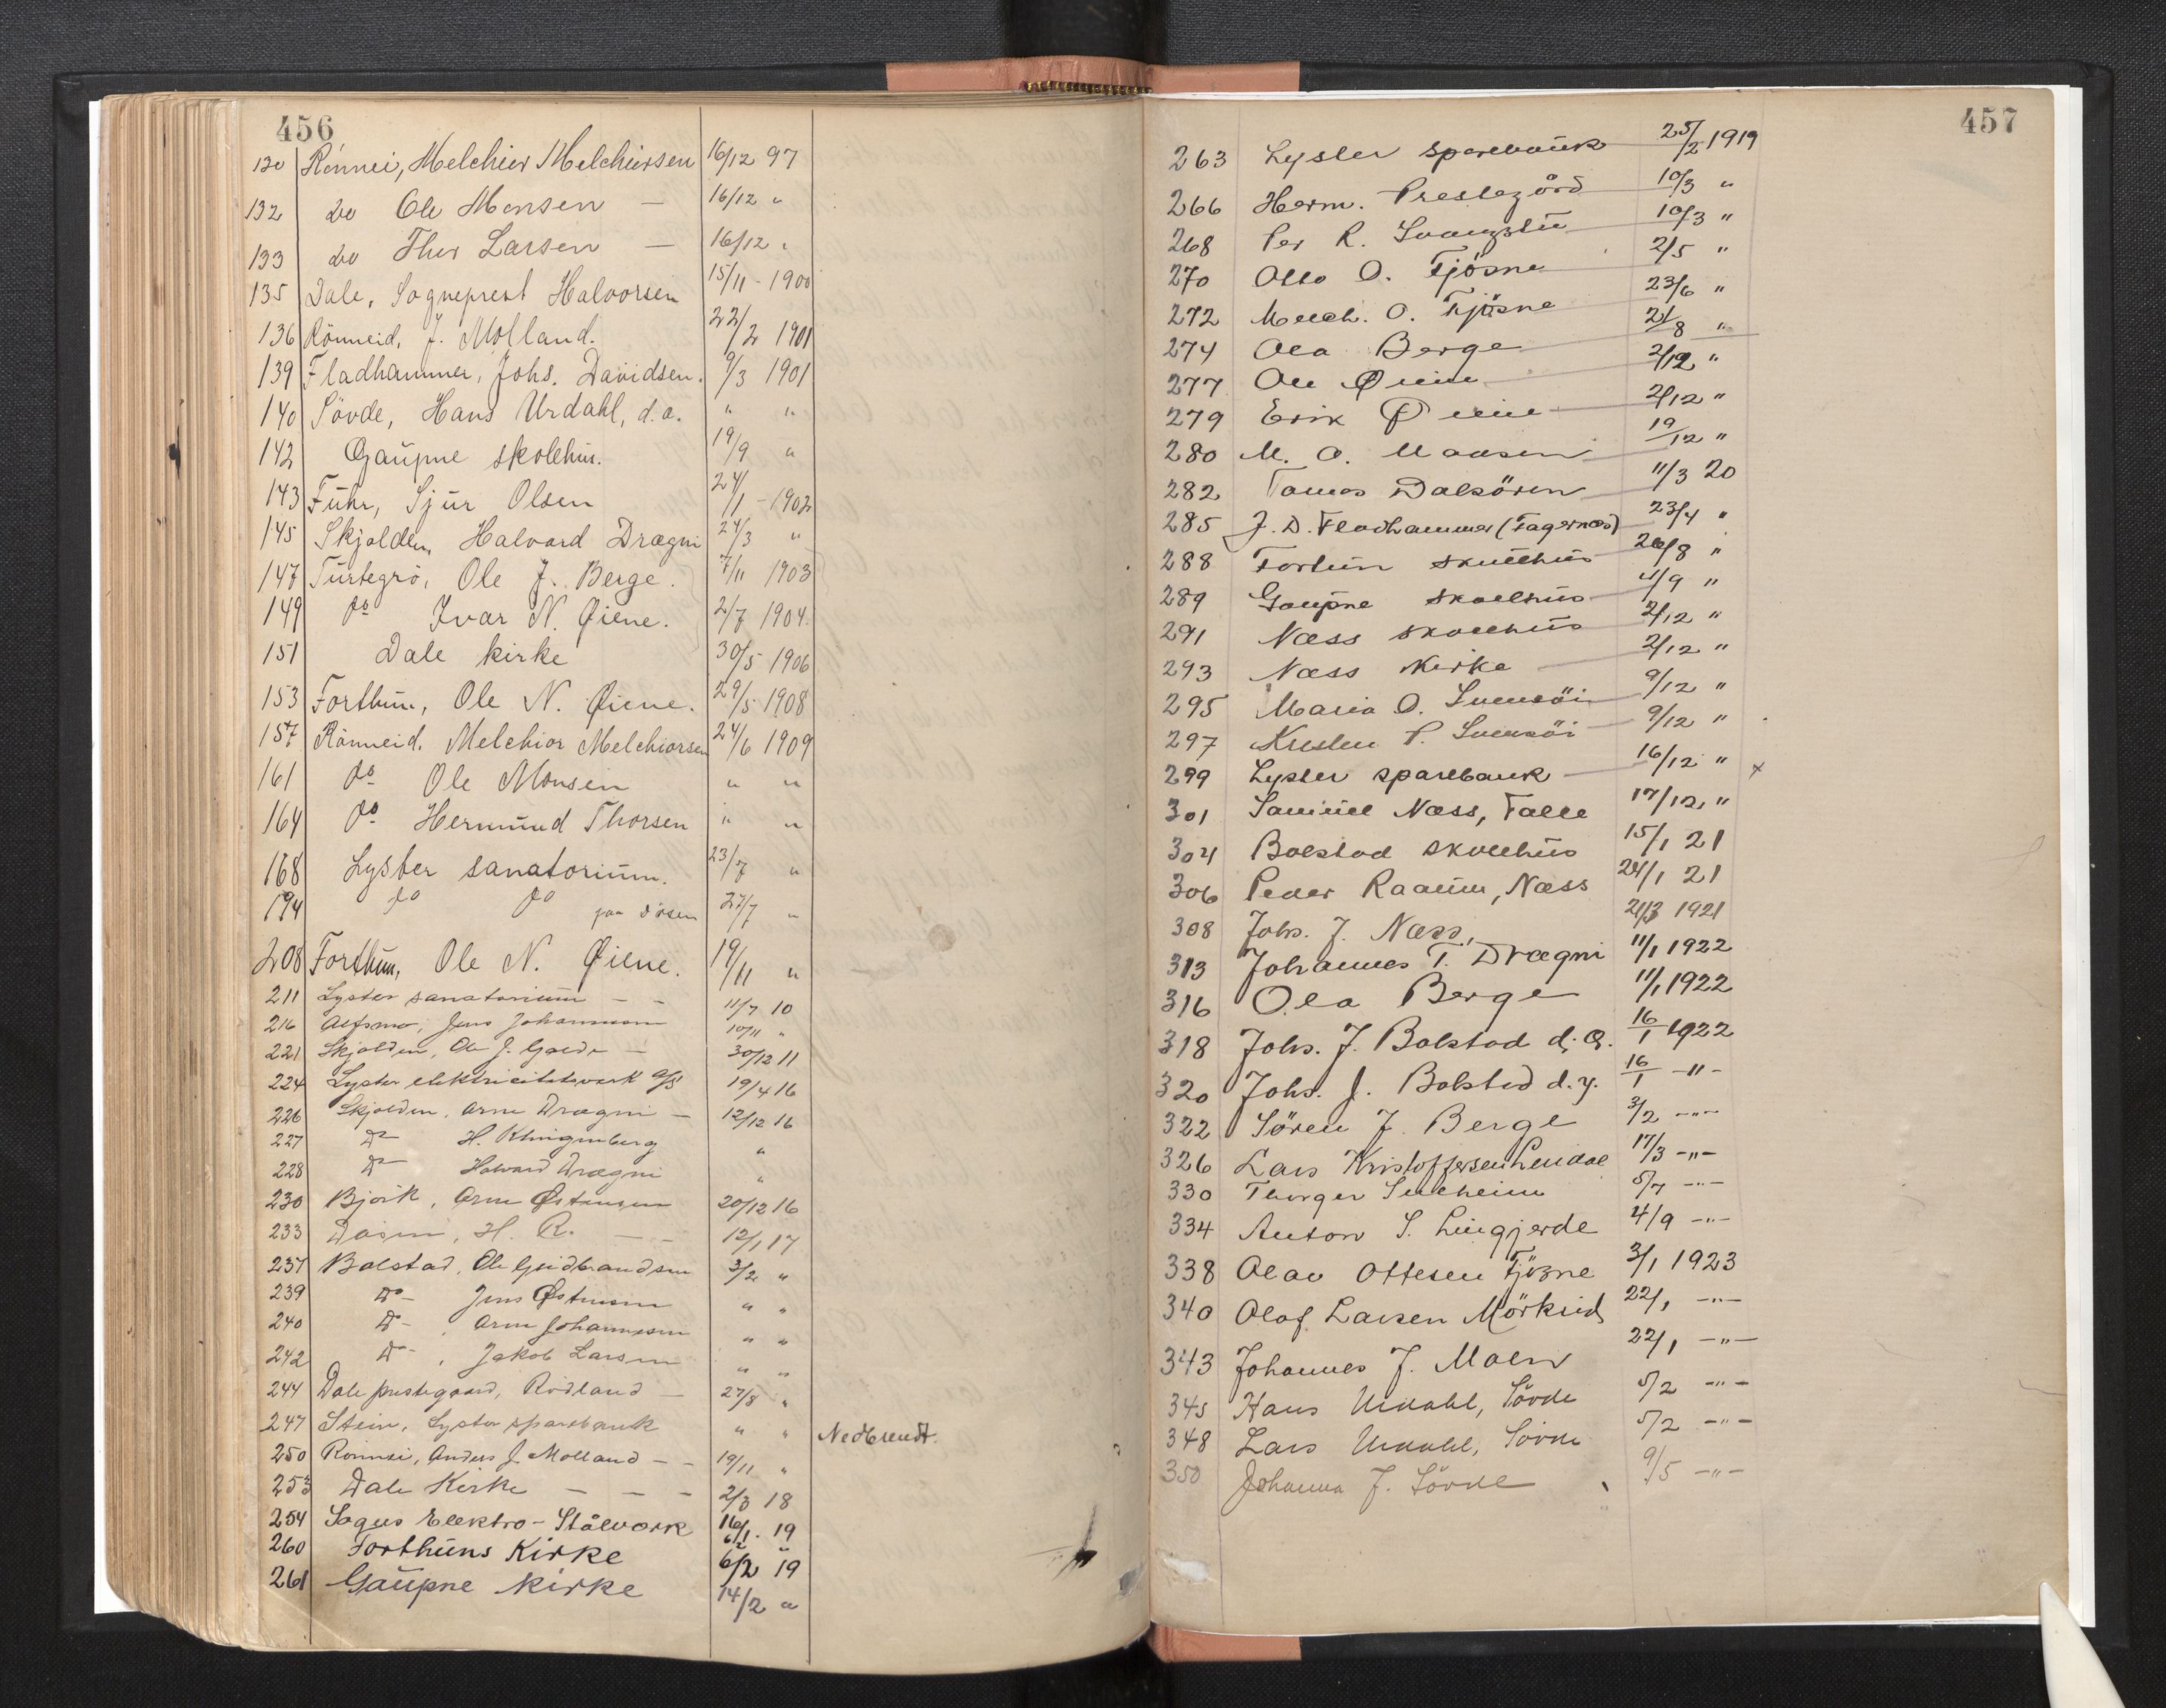 456
130 Rönnei, Melchior Melchiorsen 16/12 97
132 do Ole Monsen — 16/12 "
133 do Thor Larsen — 16/12 "
135 Dale, Sogneprest Halvorsen 15/11 - 1900
136 Rönneid, J. Molland. 22/2 1901
139 Fladhammer, Johs. Davidsen. 9/3 1901
140 Sövde, Hans Urdahl, d.a. " "
142 Gaupne skolehus. 19/9 "
143 Fuhr, Sjur Olsen 24/1 - 1902
145 Skjolden, Halvard Drægni 24/3 "
147 Turtegrö, Ole J. Berge. 7/11 1903
149 do Ivar N. Øiene. 2/7 1904.
151 Dale kirke 30/5 1906
153 Forthun, Ole N. Øiene. 29/5 1908
157 Rönneid. Melchior Melchiorsen 24/6 1909
161 do Ole Monsen " "
164 do Hermund Thorsen " "
168 Lyster sanatorium. 23/7 "
194 do do paa Dösen 27/7 "
208 Forthun, Ole N. Øiene. 19/11 "
211 Lyster sanatorium — — 11/7 10
216 Alsmo, Jens Johannesen 10/11 "
221 Skjolden, Ole J. — 30/12 11
224 Lyster elektricitetsverk a/s 19/4 16
226 Skjolden, Arne Drægni — 12/12 16
227 Do H. Klingenberg "
228 Do Halvard Drægni "
230 Bjørk, Arne Østensen 20/12 16
233 Døsen, H. R. — — 12/1 17
237 Bolstad, Ole Gudbrandsen 3/2 "
239 Do — Jens Østensen " "
240 Do —, Arne Johannesen " "
242 Do —, Jakob Larsen " "
244 Dale prestegaard, Rødland — 27/8 "
247 Stein, Lyster sparebank " " Nedbrendt.
250 Rønnei, Anders J. Molland — — 19/11 "
253 Dale Kirke — — — 2/3 18
254 Sogns Elektro-Stålverk 16/1. 19
260 Forthuns Kirke 6/2 19
261 Gaupne kirke 14/2 "
457
263 Lyster sparebank 25/2 1919
266 Herm. Prestegård 10/3 "
268 Per R. 10/3 "
270 Otto O. Fjösne 2/5 "
272 Melch. O. Fjösne 23/6 "
274 Ola Berge 21/8 "
277 Ole Øiene 2/12 "
279 Erik Øiene 2/12 "
280 M. O. Monsen 19/12 "
282 Tomas Dalsören 11/3 20
285 J. D. Fladhammer (Fagernæs) 23/4 "
288 Fortun skulehus 26/8 "
289 Gaupne skulehus /9 "
291 Næss skulehus 2/12 "
293 Næss Kirke — 2/12 "
295 Maria O. Svensöi 9/12 "
297 Kristen P. Svensöi 9/12 "
299 Lyster sparebank — 16/12 " x
301 Samuel Næss, Talle 17/12 "
304 Bolstad skulehus 15/1 21
306 Peder Raaum, Næss 24/1 21
308 Johs. J. Næss, 2/3 1921
313 Johannes T. Drægni 11/1 1922
316 Ola Berge 11/1 1922
318 Johs. J. Bolstad d. e. 16/1 1922
320 Johs. J. Bolstad d. y. 16/1 -"-
322 Sören J. Berge 3/2 -"-
326 Lars Kristoffersen Lendal 17/3 -"-
330 Thorger Sulheim 5/7 -"-
334 Anton S. Lingjerde 4/9 -"-
338 Olav Ottesen Fjösne 3/1 1923
340 Olaf Larsen Mörkrid 22/1 -"-
343 Johannes J. Moen 22/1 -"-
345 Hans Urdahl, Sövde 5/2 -"-
348 Lars Urdahl, Sövde 5/2 -"-
350 Johanna J. Sövde 9/5 -"-